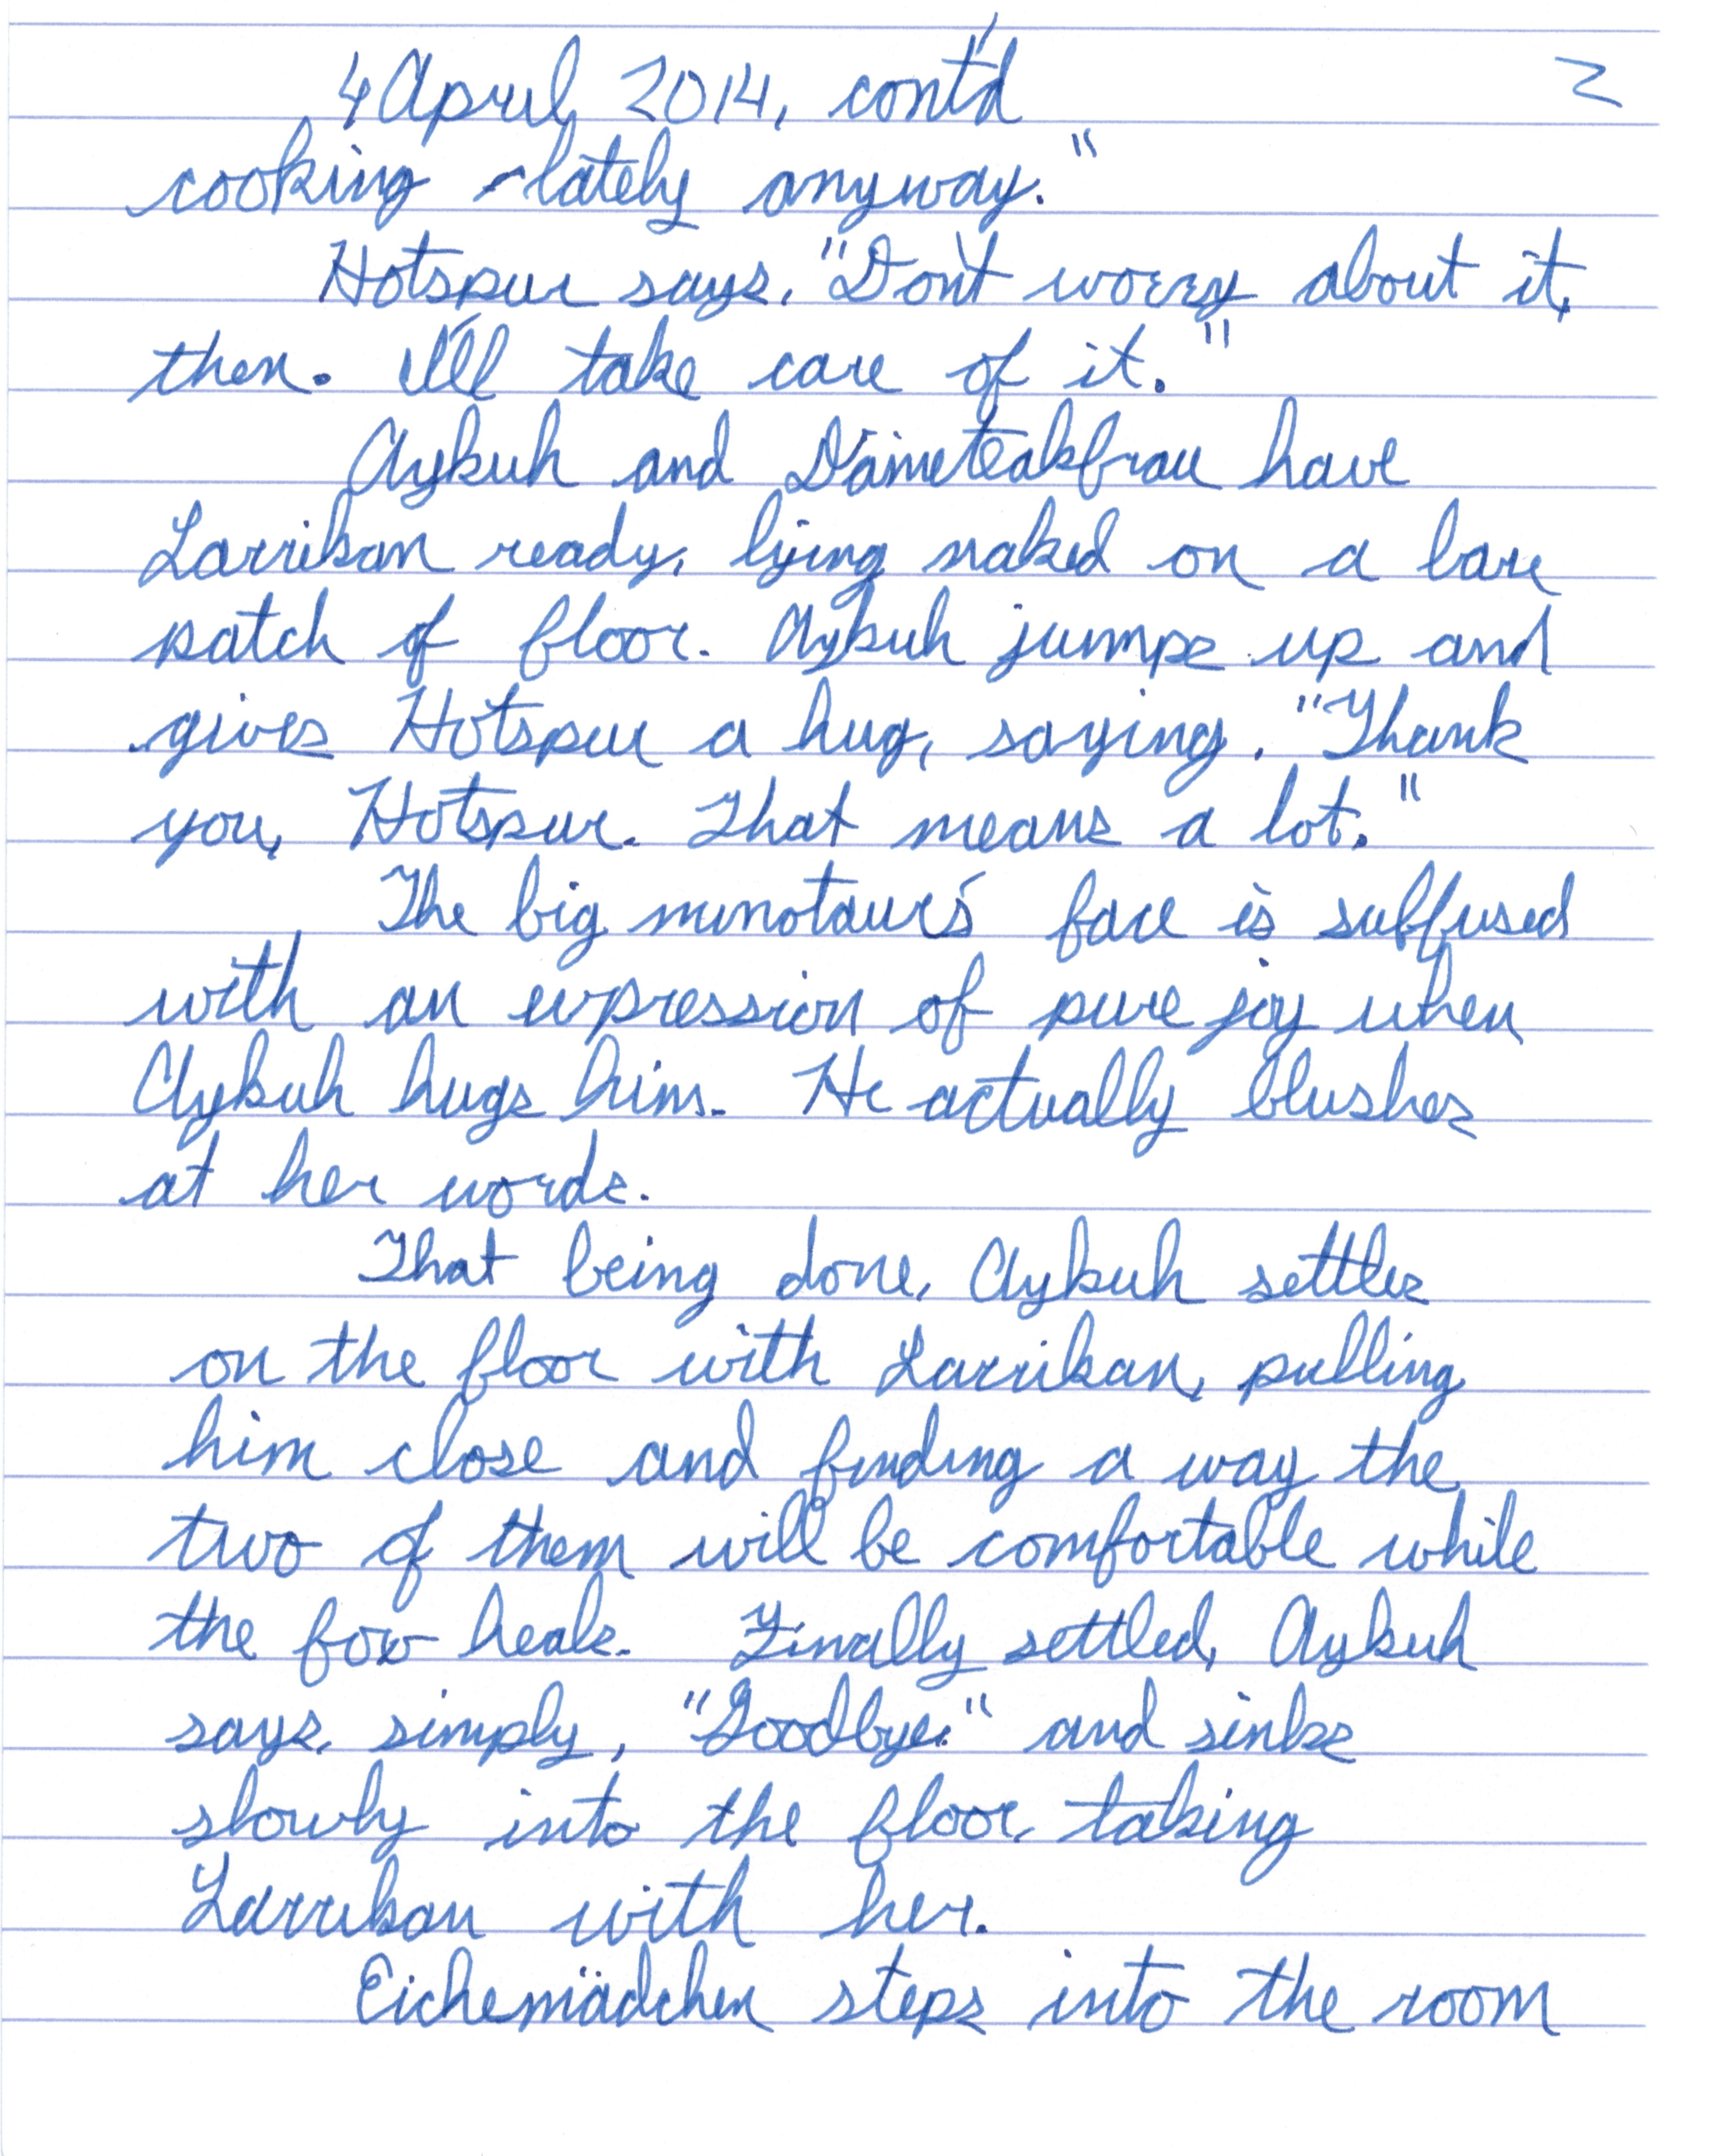 4 April, 2014, cont'd 2
cooking lately anyway."
Hotspur says, "Don't worry about it,
then. I'll take care of it."
Aykuh and Dämeteakfrau have
Larrikan ready, lying naked on a bare
patch of floor. Aykuh jumps up and
gives Hotspur a hug, saying, "Thank
you, Hotspur. That means a lot."
The big minotaur's face is suffused
with an expression of pure joy when
Aykuh hugs him. He actually blushes
at her words.
That being done, Aykuh settles
on the floor with Larrikan, pulling
him close and finding a way the
two of them will be comfortable while
the fox heals. Finally settled, Aykuh
says, simply, "Goodbye." and sinks
slowly into the floor, taking
Larrikan with her.
Eichemädchen steps into the room